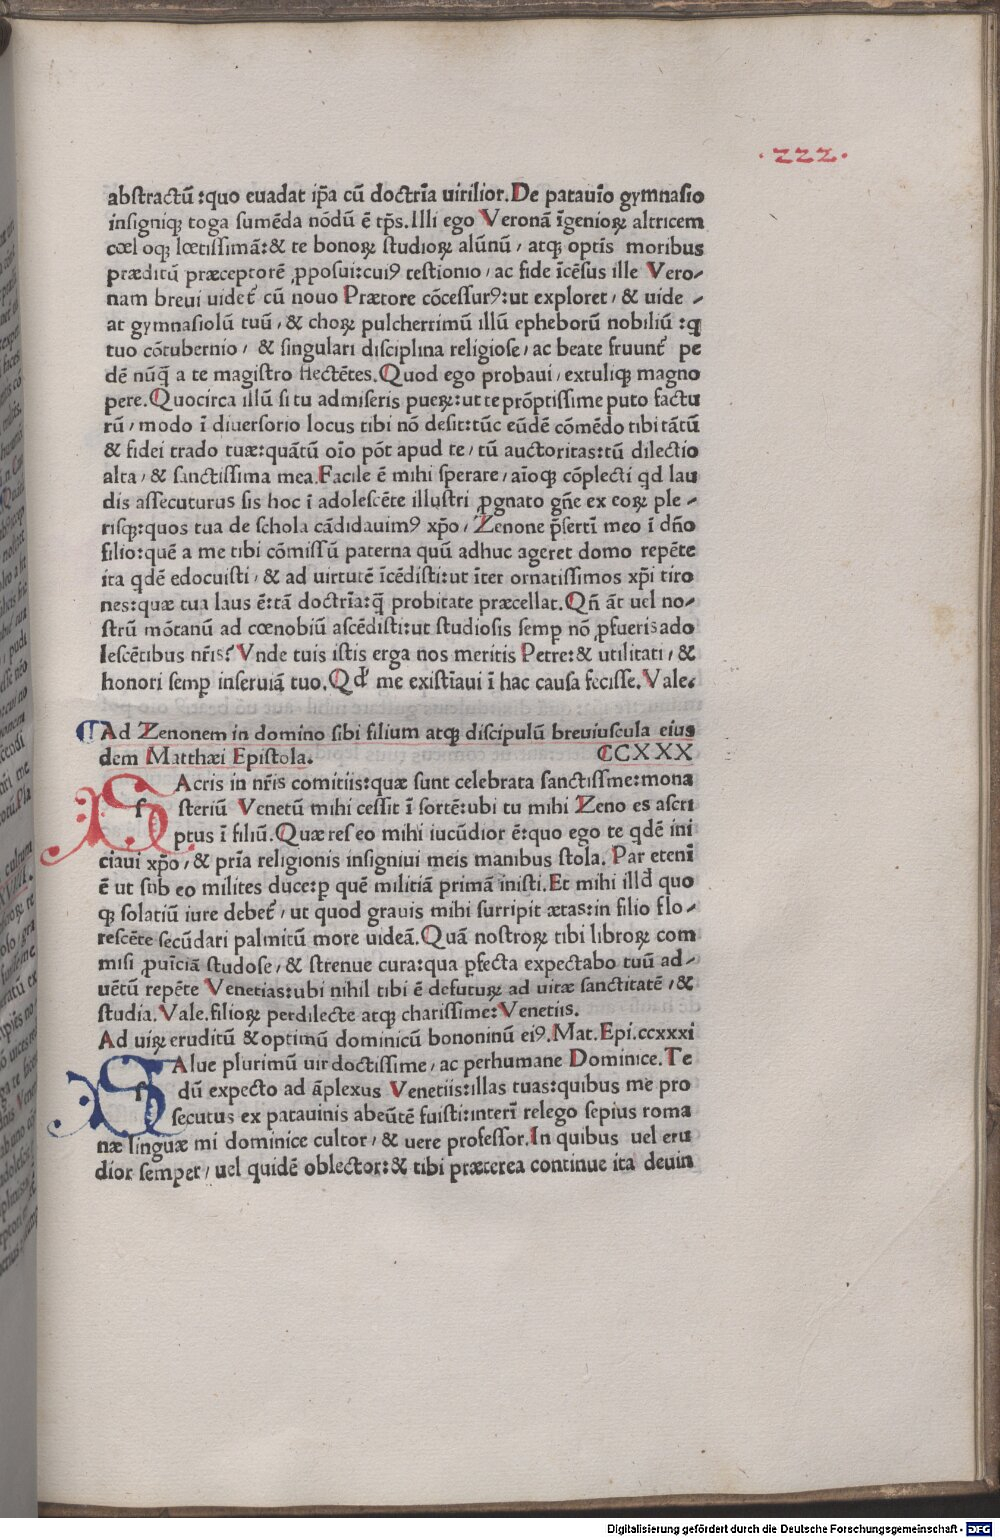 ·222·
abstractū :quo euadat ip̄a cū doctrīa uirilior.De patauīo gymnasio
insigniqꝫ toga sumēda nōdū ē tp̄s.Illi ego Veronā īgenioꝝ altricem
cœloqꝫ lœtissimā:& te bonoꝝ studioꝝ alūnū / atqꝫ optīs moribus
præditū præceptorē ꝓposui:cuiꝰ testionio / ac fide īcēsus ille Vero⸗
nam breui uidet᷑ cū nouo Prætore cōcessurꝰ:ut exploret / & uide ⸗
at gymnasiolū tuū / & choꝝ pulcherrimū illū epheborū nobiliū :q̄
tuo cōtubernio / & singulari disciplina religiose / ac beate fruunt᷑ pe
dē nūq̄ a te magistro flectētes.Quod ego probaui / extuliqꝫ magno
pere.Quocirca illū si tu admiseris pueꝝ:ut te prōptissime puto factu
rū / modo ī diuersorio locus tibi nō desit:tūc eūdē cōmēdo tibi tātū
& fidei trado tuæ:quātū oīo pōt apud te / tū auctoritas:tū dilectio
alta / & sanctissima mea.Facile ē mihi sperare / aīoqꝫ cōplecti qd lau
dis assecuturus sis hoc ī adolescēte illustri ꝓgnato gn̄e ex eoꝝ ple ⸗
risqꝫ:quos tua de schola cādidauimꝰ xp̄o / Zenone p̄sertī meo ī dn̄o
filio:quē a me tibi cōmissū paterna quū adhuc ageret domo repēte
ita qdē edocuisti / & ad uirtutē īcēdisti:ut īter ornatissimos xp̄i tiro
nes:quæ tua laus ē:tā doctrīa:q̄ probitate præcellat.Qn̄ āt uel no⸗
strū mōtanū ad cœnobiū ascēdisti:ut studiosis semꝑ nō ꝓfueris ado
lescētibus nr̄is?Vnde tuis istis erga nos meritis Petre:& utilitati / &
honori semꝑ inseruiā tuo.Qd me existīaui ī hac causa fecisse.Vale.
Ad Zenonem in domino sibi filium atqꝫ discipulū breuiuscula eius
dem Matthæi Epistola. CCXXX
SAcris in nr̄is comitiis:quæ sunt celebrata sanctissme:mona
steriū Venetū mihi cessit ī sortē:ubi tu mihi Zeno es ascri
ptus ī filiū.Quæ res eo mihi iucūdior ē:quo ego te qdē ini
ciaui xp̄o / & prīa religionis insigniui meis manibus stola. Par etenī
ē ut sub eo milites duce:ꝑ quē militiā primā inisti.Et mihi illd quo
qꝫ solatiū iure debet᷑ / ut quod grauis mihi surripit ætas:in filio flo⸗
rescēte secūdari palmitū more uideā.Quā nostroꝝ tibi libroꝝ com
misi ꝓuīciā studose / & strenue cura:qua ꝑfecta expectabo tuū ad⸗
uētū repēte Venetias:ubi nihil tibi ē defutuꝝ ad uitæ sanctitatē / &
studia. Vale.filioꝝ perdilecte atqꝫ charissime:Venetiis.
Ad uiꝝ eruditū & optimū dominicū bononinū eiꝰ.Mat.Epi.ccxxxi
SAlue plurimū uir doctissime / ac perhumane Dominice.Te
dū expecto ad āplexus Venetiis:illas tuas:quibus me pro
secutus ex patauinis abeūtē fuisti:interī relego sepius roma
næ linguæ mi dominice cultor / & uere professor.In quibus uel eru
dior semper / uel quidē oblector:& tibi præterea continue ita deuin
Digitalisierung gefördert durch die Deutsche Forschungsgemeinschaft - DFG